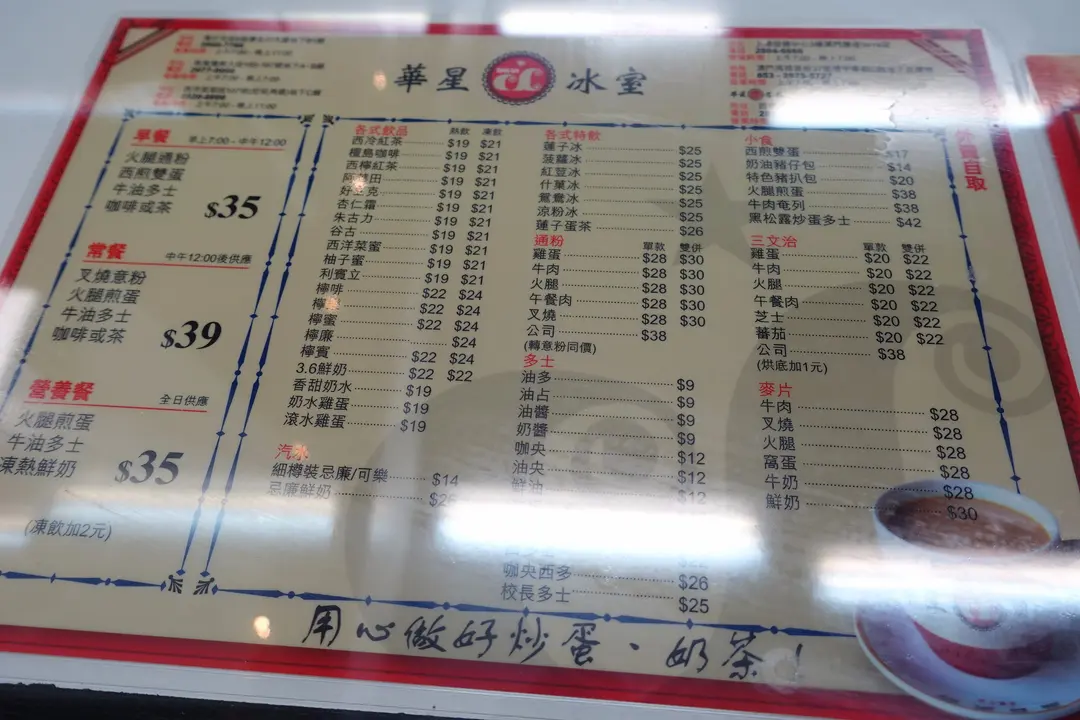 華星 冰室
早餐 早上7:00 - 中午12:00
火腿通粉
西煎雙蛋
牛油多士
咖啡或茶 $35
常餐 中午12:00後供應
叉燒意粉
火腿煎蛋
牛油多士
咖啡或茶 $39
營養餐 全日供應
火腿煎蛋
牛油多士
凍熱鮮奶 $35
(凍飲加2元)
各式飲品 熱飲 凍飲
西冷紅茶 $19 $21
檀島咖啡 $19 $21
西檸紅茶 $19 $21
阿華田 $19 $21
好立克 $19 $21
杏仁霜 $19 $21
朱古力 $19 $21
谷古 $19 $21
西洋菜蜜 $19 $21
柚子蜜 $19 $21
利賓立 $19 $21
檸啡 $22 $24
檸 $22 $24
檸蜜 $22 $24
檸廉 $24
檸賓 $22 $24
3.6鮮奶 $22 $22
香甜奶水 $19
奶水雞蛋 $19
滾水雞蛋 $19
汽水
細樽裝忌廉/可樂 $14
忌廉鮮奶
各式特飲
蓮子冰 $25
菠蘿冰 $25
紅荳冰 $25
什菓冰 $25
鴛鴦冰 $25
涼粉冰 $25
蓮子蛋茶 $26
通粉 單款 雙併
雞蛋 $28 $30
牛肉 $28 $30
火腿 $28 $30
午餐肉 $28 $30
叉燒 $28 $30
公司 $38
(轉意粉同價)
多士
油多 $9
油占 $9
油醬 $9
奶醬 $9
咖央 $12
油央 $12
鮮油 $12
咖央西多 $26
校長多士 $25
小食
西煎雙蛋 $17
奶油豬仔包 $14
特色豬扒包 $20
火腿煎蛋 $38
牛肉奄列 $38
黑松露炒蛋多士 $42
三文治 單款 雙併
雞蛋 $20 $22
牛肉 $20 $22
火腿 $20 $22
午餐肉 $20 $22
芝士 $20 $22
蕃茄 $20 $22
公司 $38
(烘底加1元)
麥片
牛肉 $28
叉燒 $28
火腿 $28
窩蛋 $28
牛奶 $28
鮮奶 $30
外賣自取
用心做好炒蛋、奶茶!